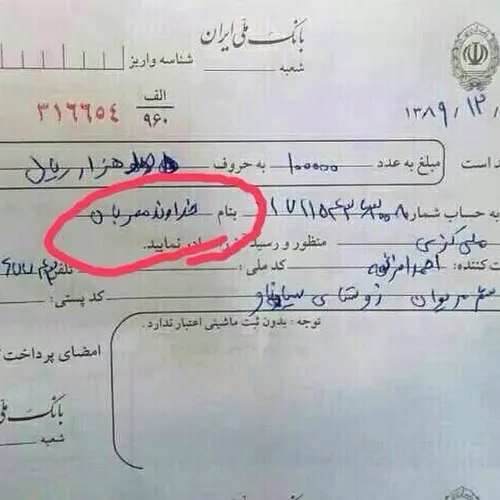 بانک ملی ایران
شعبه
شناسه واریز
الف
۹۶۰
۳۱۶۶۵۴
۱۳۸۹/۱۲/
د است مبلغ به عدد ۱۰۰۰۰۰ به حروف هزار ریال
به حساب شماره بنام خداوند مهربان
ملی مرکزی منظور و رسید نمایید.
ت کننده: احمد کد ملی: تلفن:
مریوان روستای کد پستی:
توجه: بدون ثبت ماشینی اعتبار ندارد.
امضای پرداخت
بانک ملی
شعبه